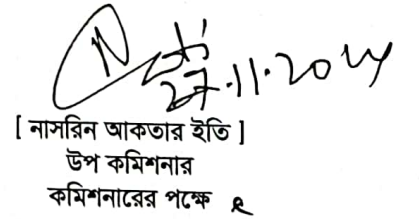 27.11.2024
[ নাসরিন আকতার ইতি ]
উপ কমিশনার
কমিশনারের পক্ষে